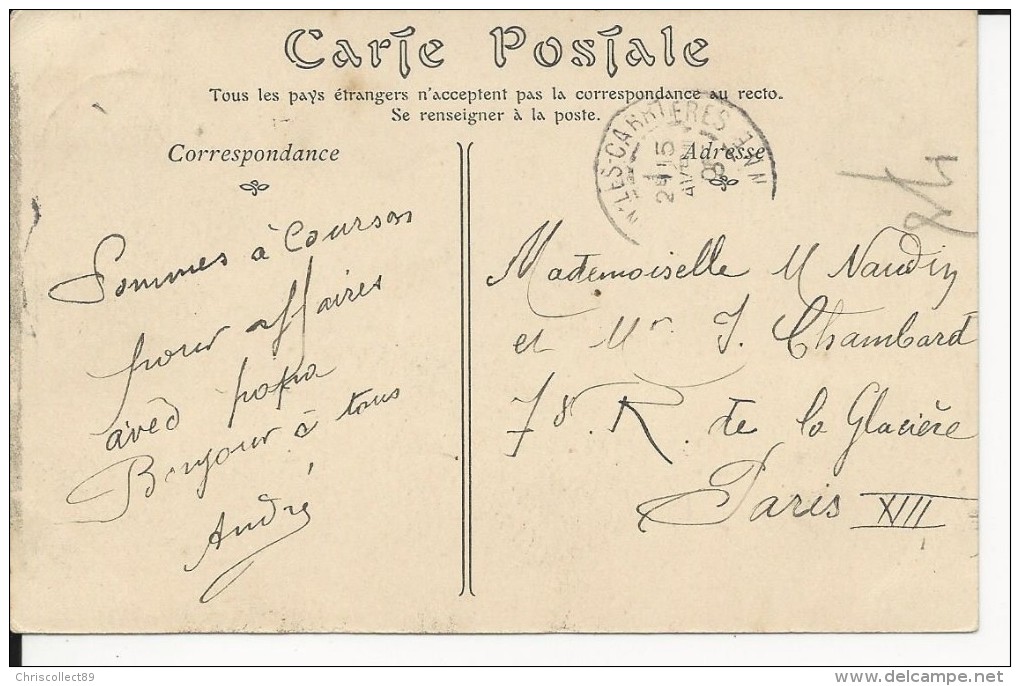 Carte Postale
Tous les pays étrangers n'acceptent pas la correspondance au recto.
Se renseigner à la poste.
Correspondance
Adresse
N-LES-CARRIERES YONNE
Sommes à Courson
pour affaires
avec papa
Bonjour à tous
André
Mademoiselle M Naudin
et Mr J. Chambard
78. R. de la Glacière
Paris XIII
Chriscollect89
www.delcampe.net